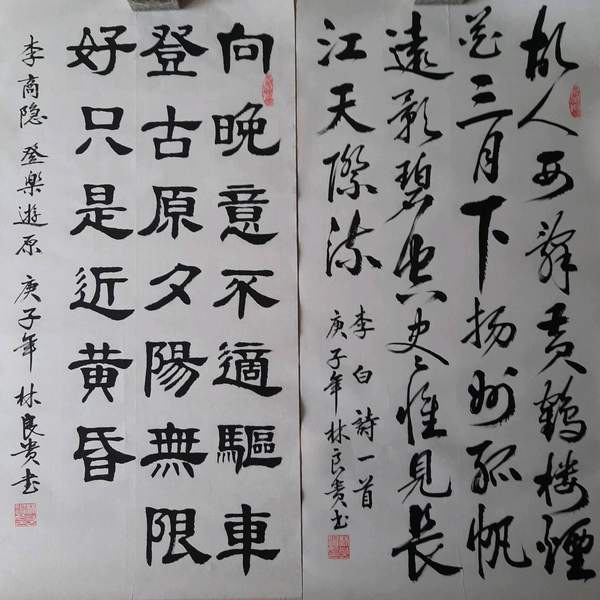 故人西辭黄鶴楼煙
花三月下扬州孤帆
遠影碧空尽惟見長
江天際流
李白詩一首
庚子年林良贵书
向晚意不適驅車
登古原夕陽無限
好只是近黄昏
李商隐 登樂遊原 庚子年 林良贵书